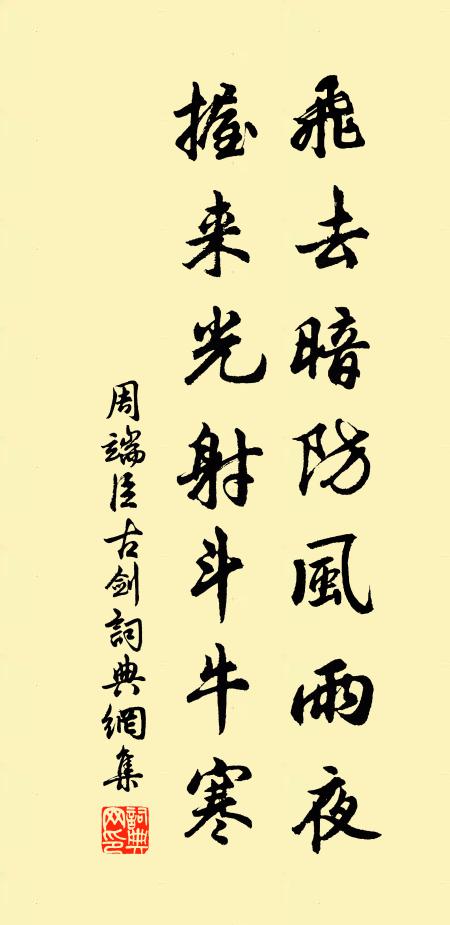 飛去暗防風雨夜
握来光射斗牛寒
周端臣古劍詞典網集
詞典网印